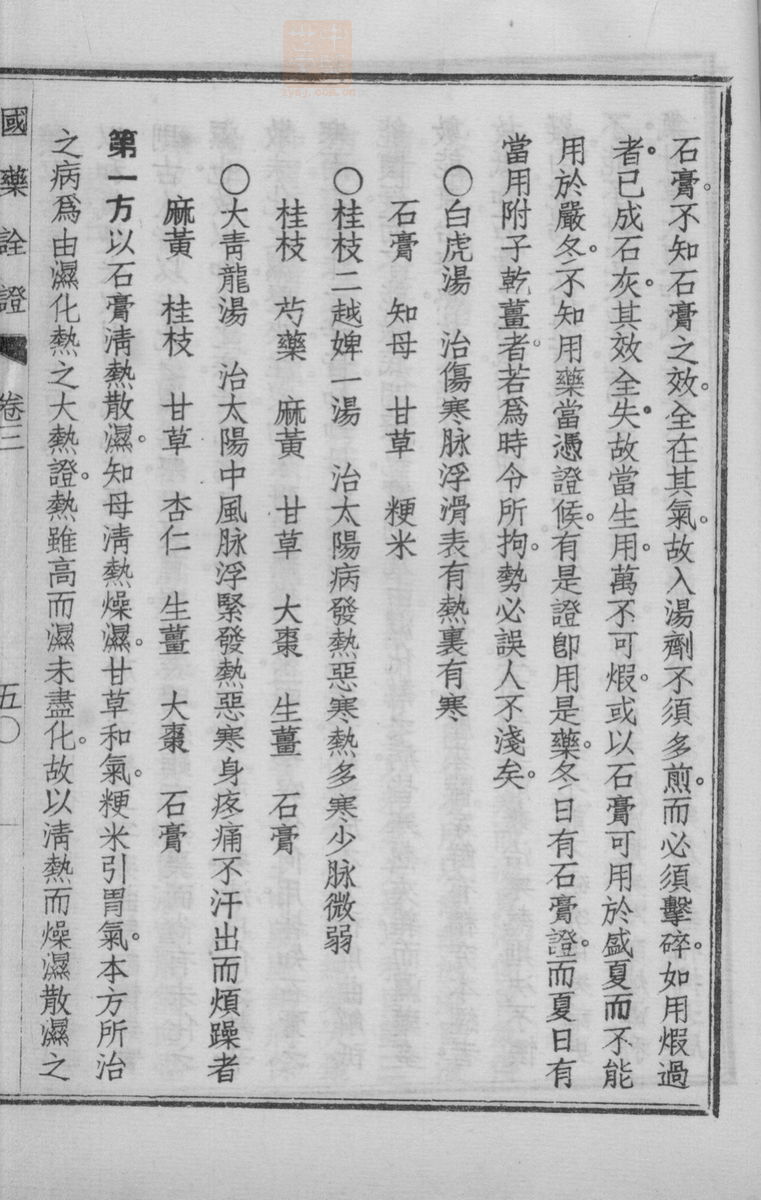 石膏。不知石膏之效。全在其氣。故入湯劑不須多煎。而必須擊碎。如用煅過
者。已成石灰。其效全失。故當生用。萬不可煅。或以石膏可用於盛夏而不能
用於嚴冬。不知用藥當憑證候。有是證卽用是藥。冬日有石膏證。而夏日有
當用附子乾薑者。若爲時令所拘。勢必誤人不淺矣。
〇白虎湯　治傷寒脉浮滑表有熱裏有寒
石膏　知母　甘草　粳米
〇桂枝二越婢一湯　治太陽病發熱惡寒熱多寒少脉微弱
桂枝　芍藥　麻黃　甘草　大棗　生薑　石膏
〇大青龍湯　治太陽中風脉浮緊發熱惡寒身疼痛不汗出而煩躁者
麻黃　桂枝　甘草　杏仁　生薑　大棗　石膏
第一方以石膏淸熱散濕。知母淸熱燥濕。甘草和氣。粳米引胃氣。本方所治
之病爲由濕化熱之大熱證。熱雖高而濕未盡化。故以淸熱而燥濕散濕之
國藥詮證　卷三　五〇